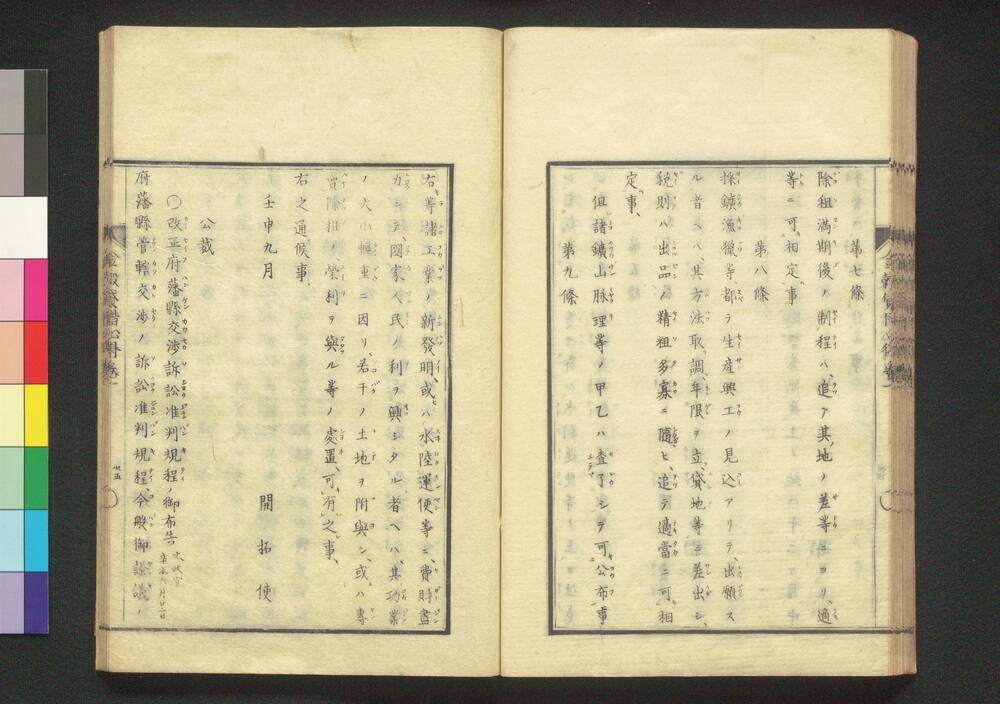 第七條
除租滿期後ノ制程ハ、追テ其ノ地ノ差等ニヨリ、適
等ニ可相定事
第八條
採鑛漁獵等、都テ生産興工ノ見込アリテ、出願ス
ル者ヘハ、其方法取調、年限ヲ立、貸地等ニ差出シ、
税則ハ出品ノ精粗多寡ニ隨ヒ、追テ適當ニ可相
定事、
但諸鑛山脉理等ノ甲乙ハ査了シテ可公布事
第九條
右等諸工業ノ新發明、或ハ水陸運便等ニ、費財盡
力シテ國家人民ノ利ヲ興シタル者ヘハ、其功業
ノ大小輕重ニ因リ、若干ノ土地ヲ附與シ、或ハ專
賣除租ノ榮利ヲ與ル等ノ處置、可有之事、
右之通候事、
壬申九月
開拓使
公裁
○改正府藩縣交渉訴訟准判規程ノ御布告 太政官
府藩縣管轄交渉ノ訴訟准判規程、今般御詮議ノ